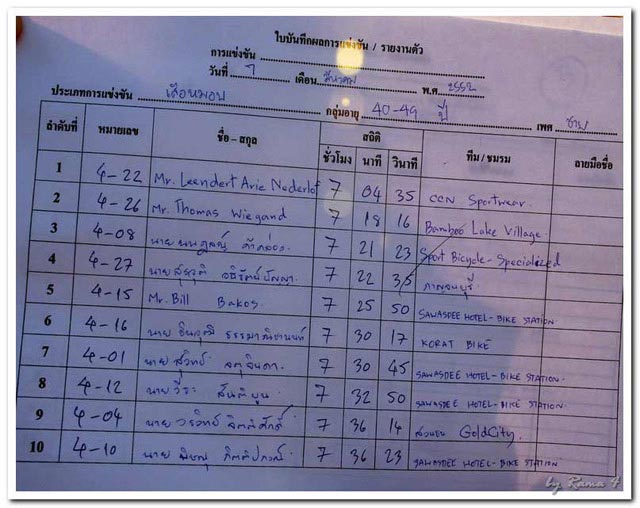 ใบบันทึกผลการแข่งขัน / รายงานตัว
การแข่งขัน
วันที่ 7 เดือน มีนาคม พ.ศ. 2552
ประเภทการแข่งขัน เสือหมอบ กลุ่มอายุ 40-49 ปี เพศ ชาย
ลำดับที่ หมายเลข ชื่อ – สกุล สถิติ ทีม / ชมรม ลายมือชื่อ
ชั่วโมง นาที วินาที
1 4-22 Mr. Leendert Arie Nederlof 7 04 35 CCN Sportwear.
2 4-26 Mr. Thomas Wiegand 7 18 16 Bamboo Lake Village.
3 4-08 นาย 7 21 23 Sport Bicycle - Specialized
4 4-27 นาย 7 22 35 กาญจนบุรี
5 4-15 Mr. Bill Bakos. 7 25 50 SAWASDEE HOTEL - BIKE STATION
6 4-16 นาย 7 30 17 KORAT BIKE
7 4-01 นาย สุวิทย์ 7 30 45 SAWASDEE HOTEL - BIKE STATION.
8 4-12 นาย วีระ 7 32 50 SAWASDEE HOTEL - BIKE STATION.
9 4-04 นาย วรวิทย์ 7 36 14 GoldCity.
10 4-10 นาย พิษณุ 7 36 23 SAWASDEE HOTEL - BIKE STATION
by Rama 4